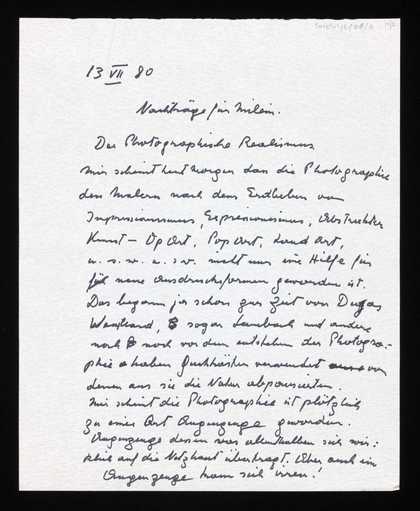 13 VII 80
Nachträge für Milein.
Der Photographische Realismus
Mir scheint heut morgen dan die Photographie
den Malern nach dem Erstleben von
Impressionismus, Expressionismus, Abstrackter
Kunst – Op Art, Pop Art, Land Art,
u. s. w. u. s. w. nicht nur eine Hilfe für
neue Ausdrucksformen geworden ist.
Das begann ja schon zur Zeit von Degas
sogar Lenbach und andere
noch vor dem entstehen der Photogra-
phie haben Guckkästen verwendet von
denen aus sie die Natur abpausierten.
Mir scheint die Photographie ist plötzlich
zu einer Art Augenzeuge geworden.
Augenzeuge dessen was
sich auf die Netzhaut überträgt. Aber auch ein
Augenzeuge kann sich irren!